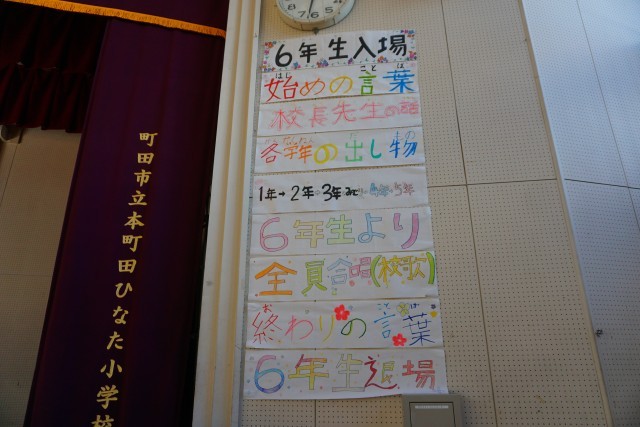 町田市立本町田ひなた小学校
6年生入場
始めの言葉
はじ こと ば
校長先生の話
各学年の出し物
1年→2年→3年→4年→5年
6年生より
全員合唱(校歌)
終わりの言葉
お こと ば
6年生退場